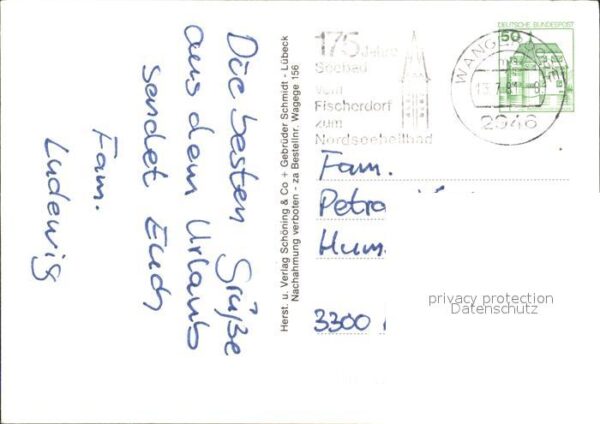 Die besten Grüße
aus dem Urlaub
sendet Euch
Fam.
Ludewig
Herst. u. Verlag Schöning & Co + Gebrüder Schmidt - Lübeck
Nachahmung verboten - za Bestellnr. Wagege 156
175 Jahre
Seebad
vom
Fischerdorf
zum
Nordseeheilbad
DEUTSCHE BUNDESPOST
50
2946
Fam.
Petra
Hum
3300
privacy protection
Datenschutz